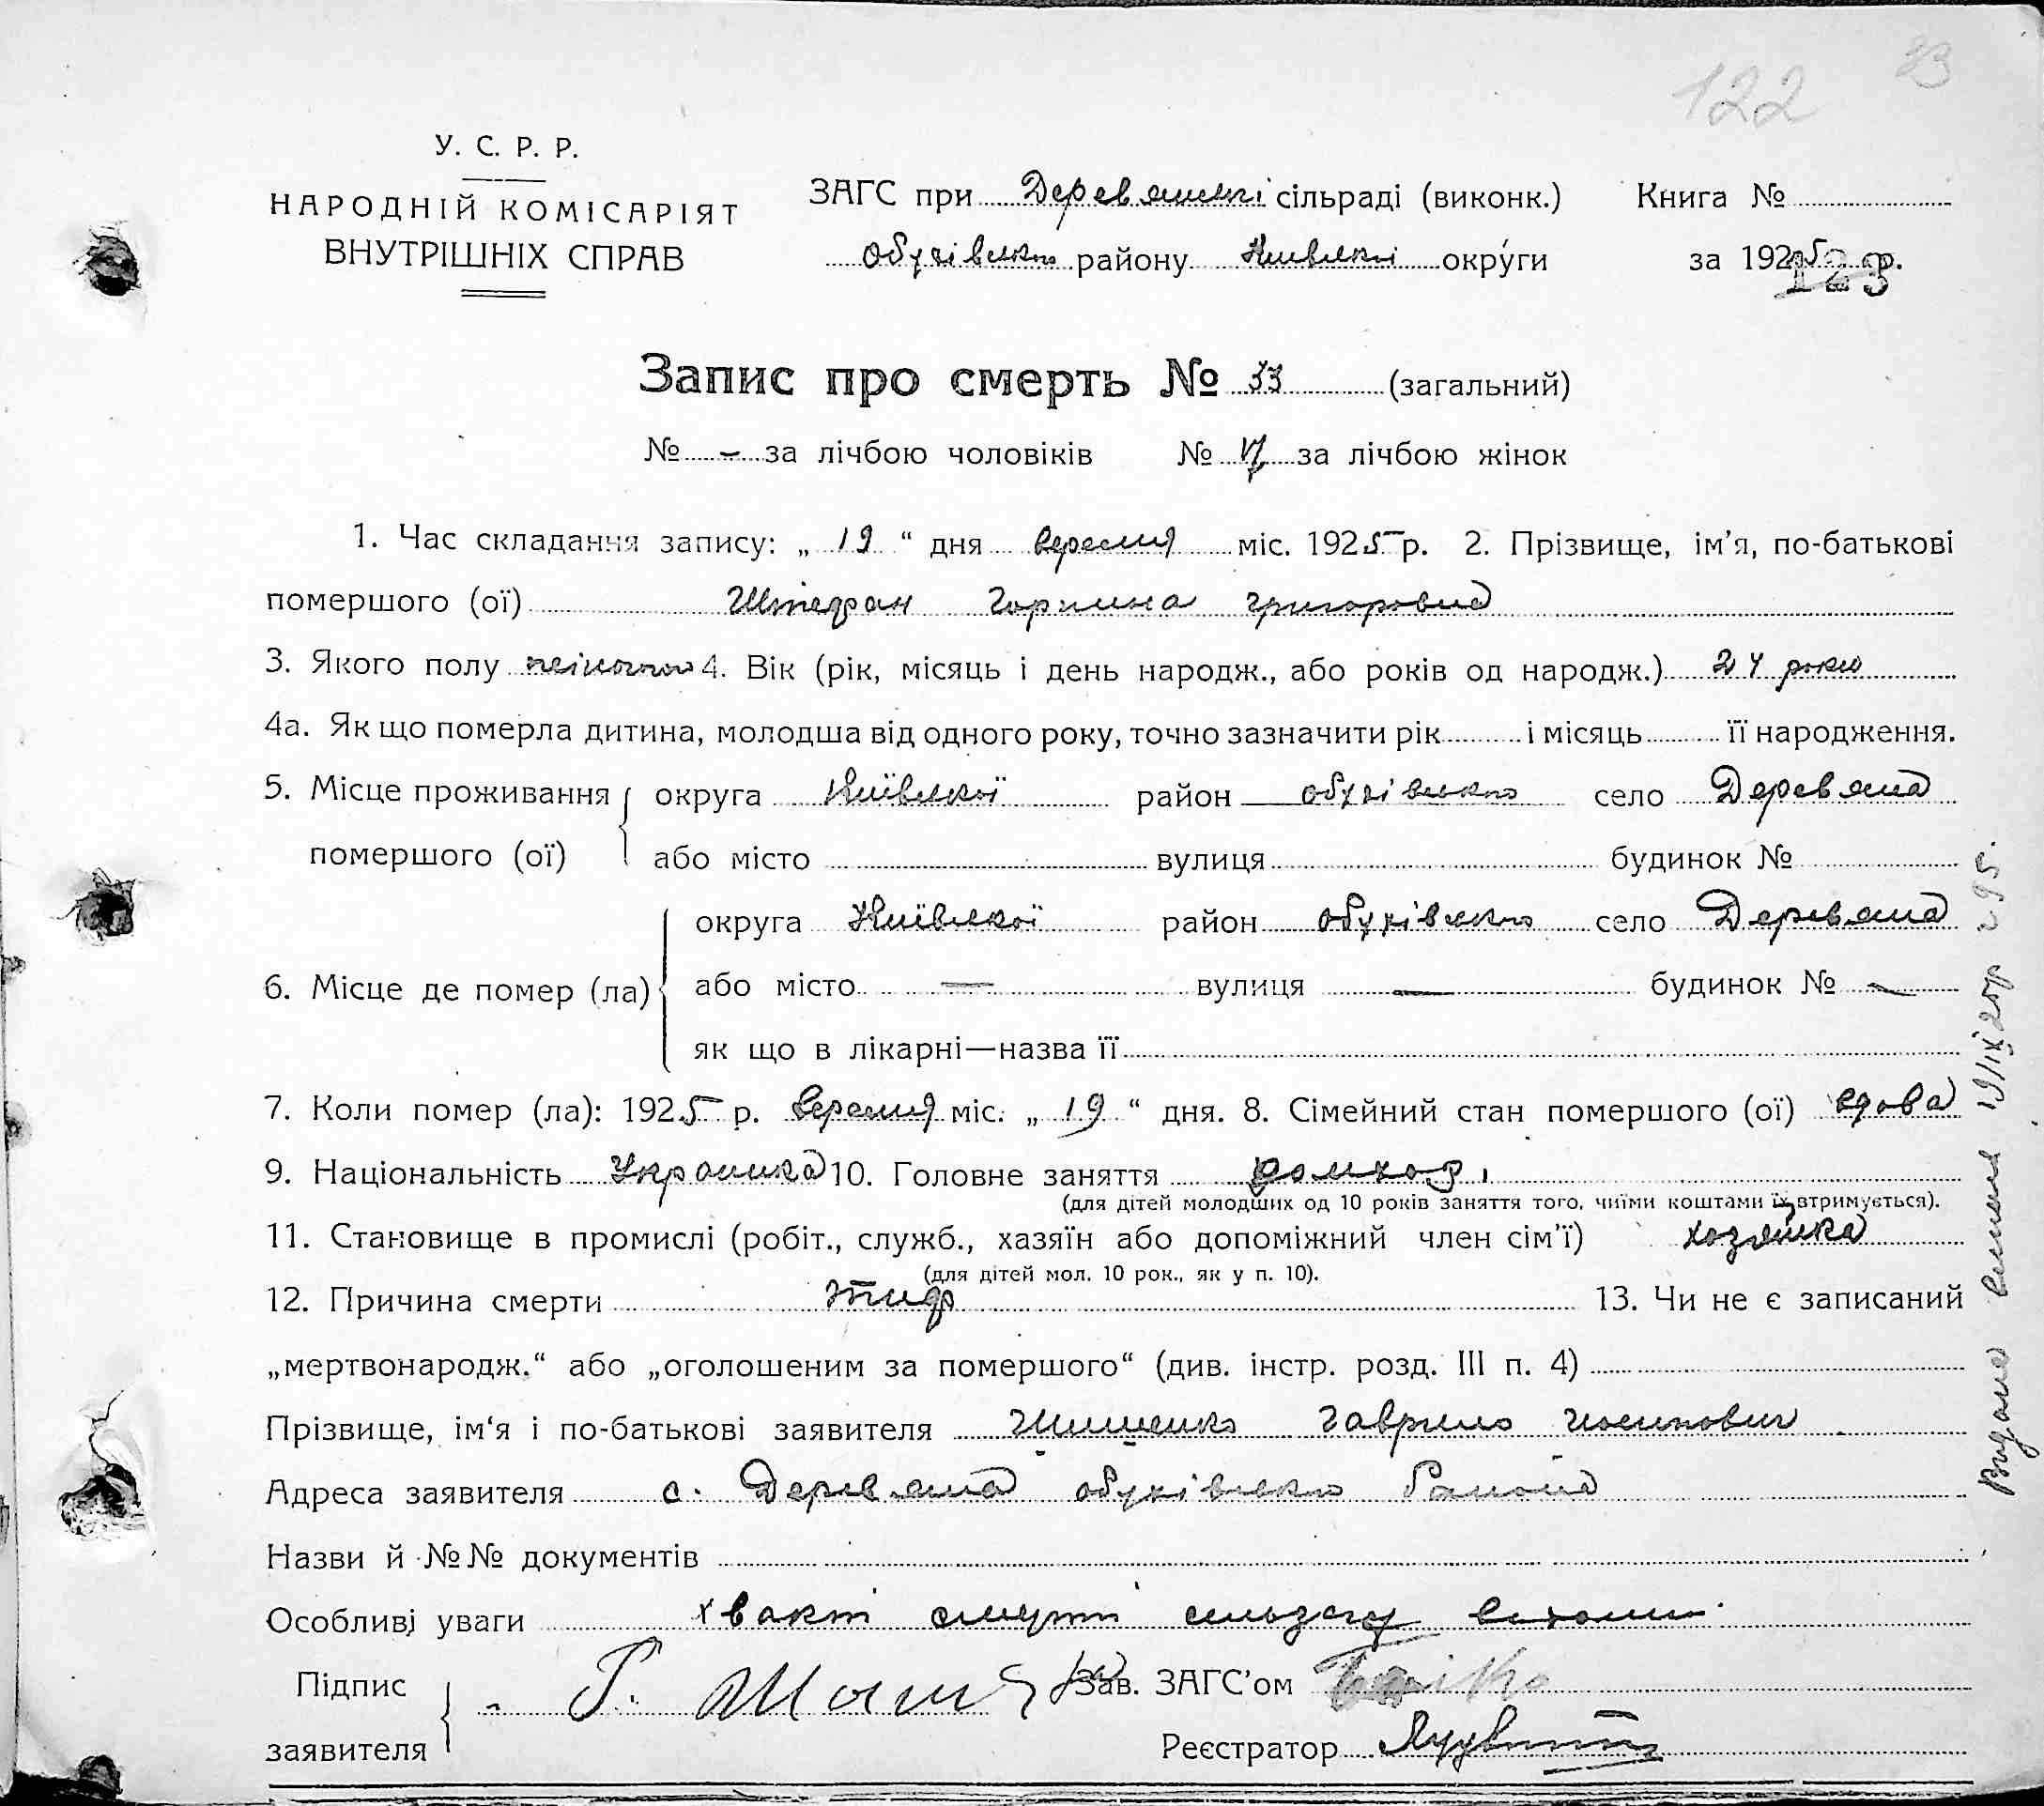 122 23
У. С. Р. Р.
НАРОДНІЙ КОМІСАРІЯТ
ВНУТРІШНІХ СПРАВ
ЗАГС при Деревянські сільраді (виконк.) Книга №
Обухівсько району Київської округи за 1925 р.
123
Запис про смерть № 33 (загальний)
№ - за лічбою чоловіків № 17 за лічбою жінок
1. Час складання запису: „ 19 “ дня вересня міс. 1925 р. 2. Прізвище, ім’я, по-батькові
помершого (ої) Штефан Горпина Григоровна
3. Якого полу жіночого 4. Вік (рік, місяць і день народж., або років од народж.) 24 роки
4а. Як що померла дитина, молодша від одного року, точно зазначити рік і місяць її народження.
5. Місце проживання округа Київської район обухівсько село Деревяна
помершого (ої) або місто вулиця будинок №
6. Місце де помер (ла) округа Київської район обухівсько село Деревяна
або місто — вулиця — будинок № —
як що в лікарні—назва її
7. Коли помер (ла): 1925 р. вересня міс. „ 19 “ дня. 8. Сімейний стан помершого (ої) вдова
9. Національність Українка 10. Головне заняття домхоз.
(для дітей молодших од 10 років заняття того, чиїми коштами їх втримується).
11. Становище в промислі (робіт., служб., хазяїн або допоміжний член сім’ї) хозяйка
(для дітей мол. 10 рок., як у п. 10).
12. Причина смерти тиф 13. Чи не є записаний
„мертвонародж.“ або „оголошеним за помершого“ (див. інстр. розд. III п. 4)
Прізвище, ім‘я і по-батькові заявителя Гаврило
Адреса заявителя с. Деревяна обухівсько Района
Назви й №№ документів
Особливі уваги хвакт смерти
Підпис
заявителя
Зав. ЗАГС’ом
Реєстратор
Видана 19/IX 25р 295.